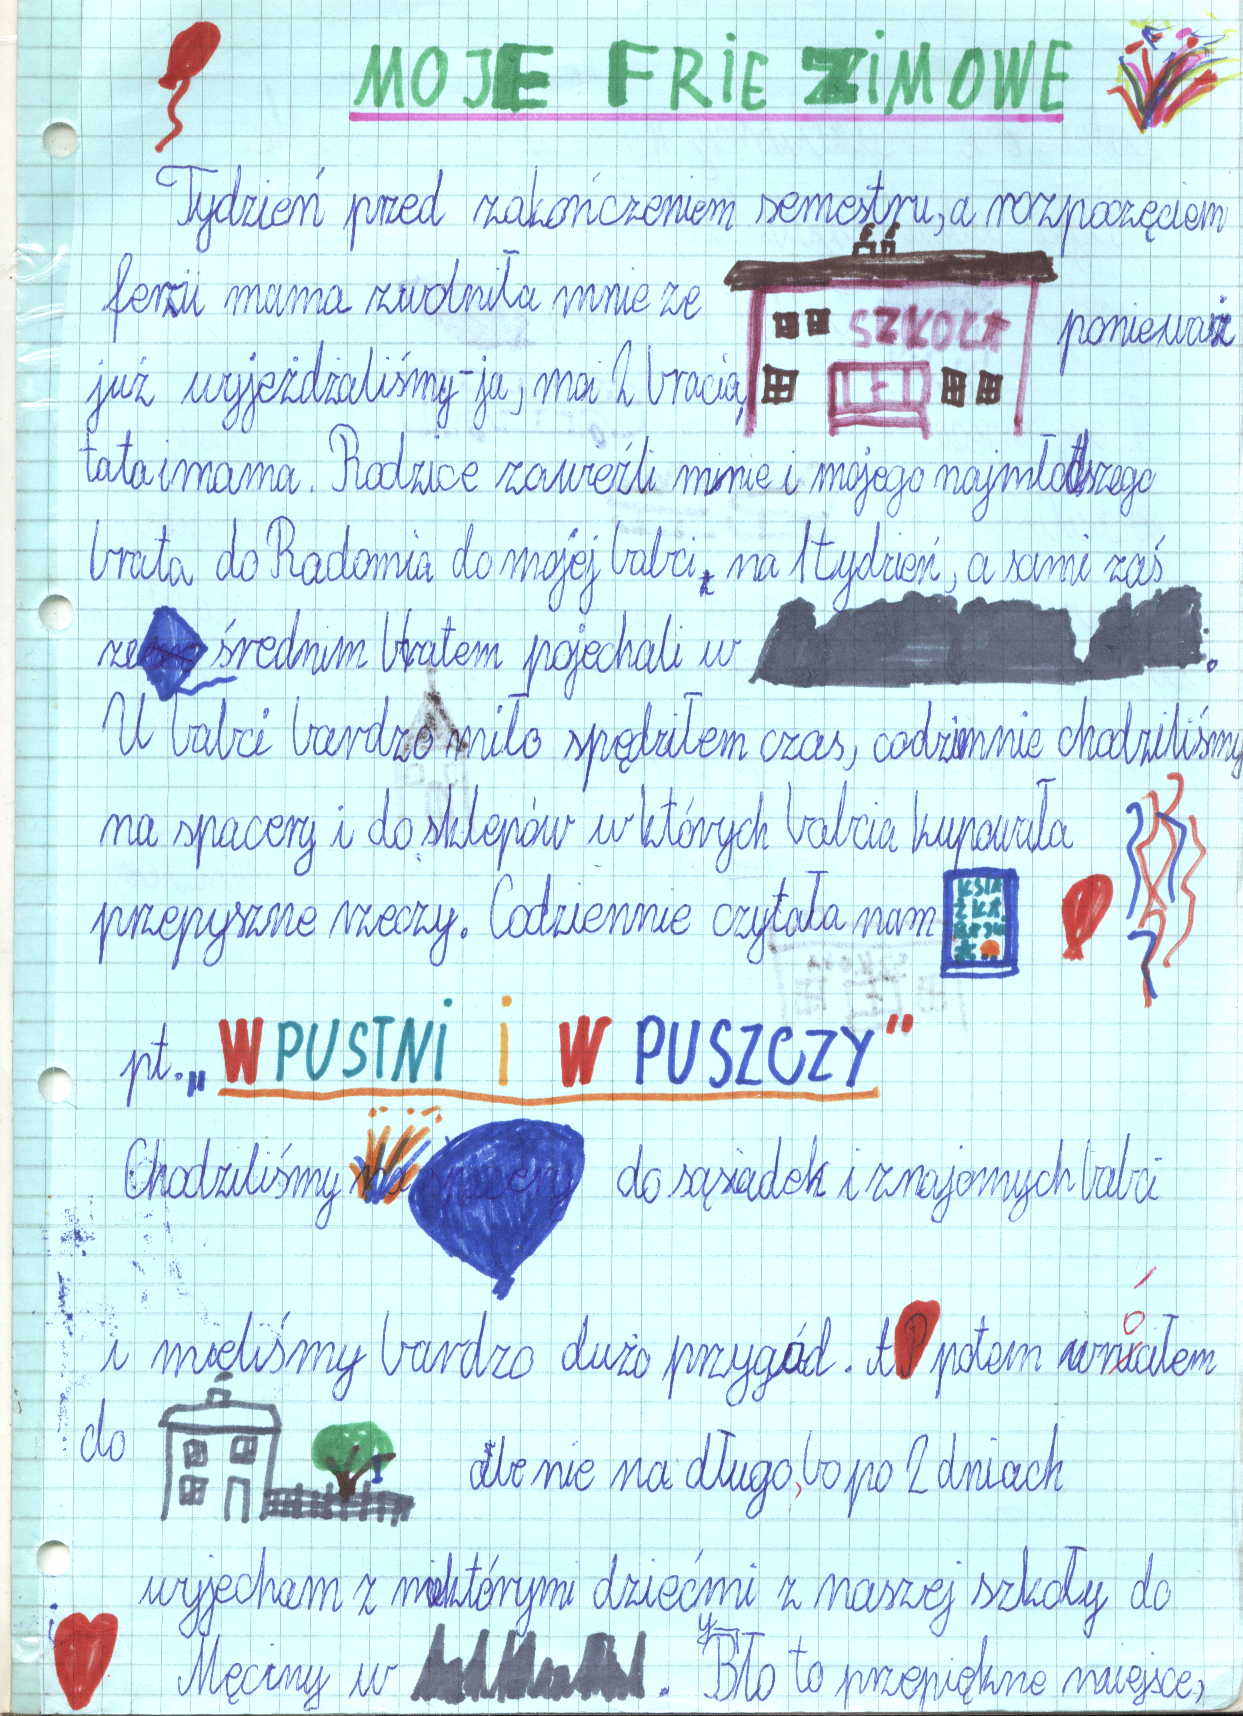 MOJE FRIE ZIMOWE
Tydzień przed zakończeniem semestru, a rozpoczęciem
ferii mama zwolniła mnie ze SZKOŁA ponieważ
już wyjeżdzaliśmy - ja, moi 2 bracia,
tata i mama. Rodzice zawieźli mnie i mojego najmłodszego
brata do Radomia do mojej babci, na 1 tydzień, a sami zaś
ze średnim bratem pojechali w .
U babci bardzo miło spędziłem czas, codziennie chodziliśmy
na spacery i do sklepów w których babcia kupowała
przepyszne rzeczy. Codziennie czytała nam
pt. „W PUSTNI i W PUSZCZY”
Chodziliśmy do sąsiadek i znajomych babci
i mieliśmy bardzo dużo przygód. A potem wróciałem
do ale nie na długo, bo po 2 dniach
wyjecham z niektórymi dziećmi z naszej szkoły do
Męciny w . Było to przepiękne miejsce,